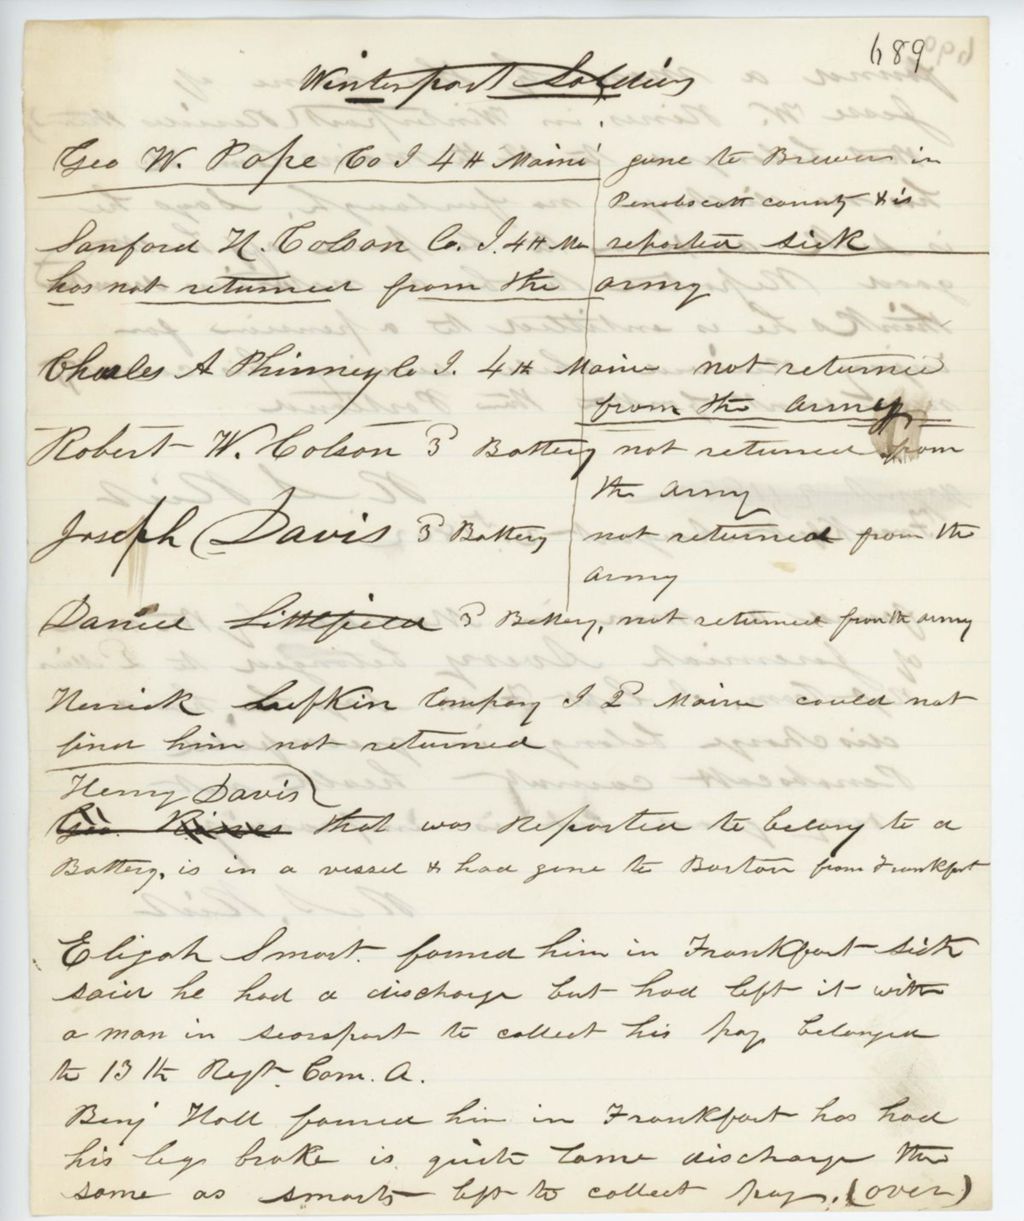 689
Winterport Soldiers
Geo W. Pope Co I 4th Maine gone to Brewer in
Penobscott county & is
reported sick
Sanford H. Colson Co. I. 4th Me
has not returned from the army
Charles A Phinney Co I. 4th Maine not returned
from the army
Robert W. Colson 3d Battery not returned from
the army
Joseph Davis 3d Battery not returned from the
army
Daniel Littlefield 3d Battery, not returned from the army
Herrick Lufkin Company I 2d Maine could not
find him not returned
Henry Davis
Geo. Rines that was Reported to belong to a
Battery, is in a vessel & had gone to Boston from Frankfort
Elijah Smart. found him in Frankfort sick
said he had a discharge but had left it with
a man in searsport to collect his pay belonged
to 13th Regt. Com. A.
Benj Hall found him in Frankfort has had
his leg broke is quite lame discharge the
same as smarts left to collect pay. (over)